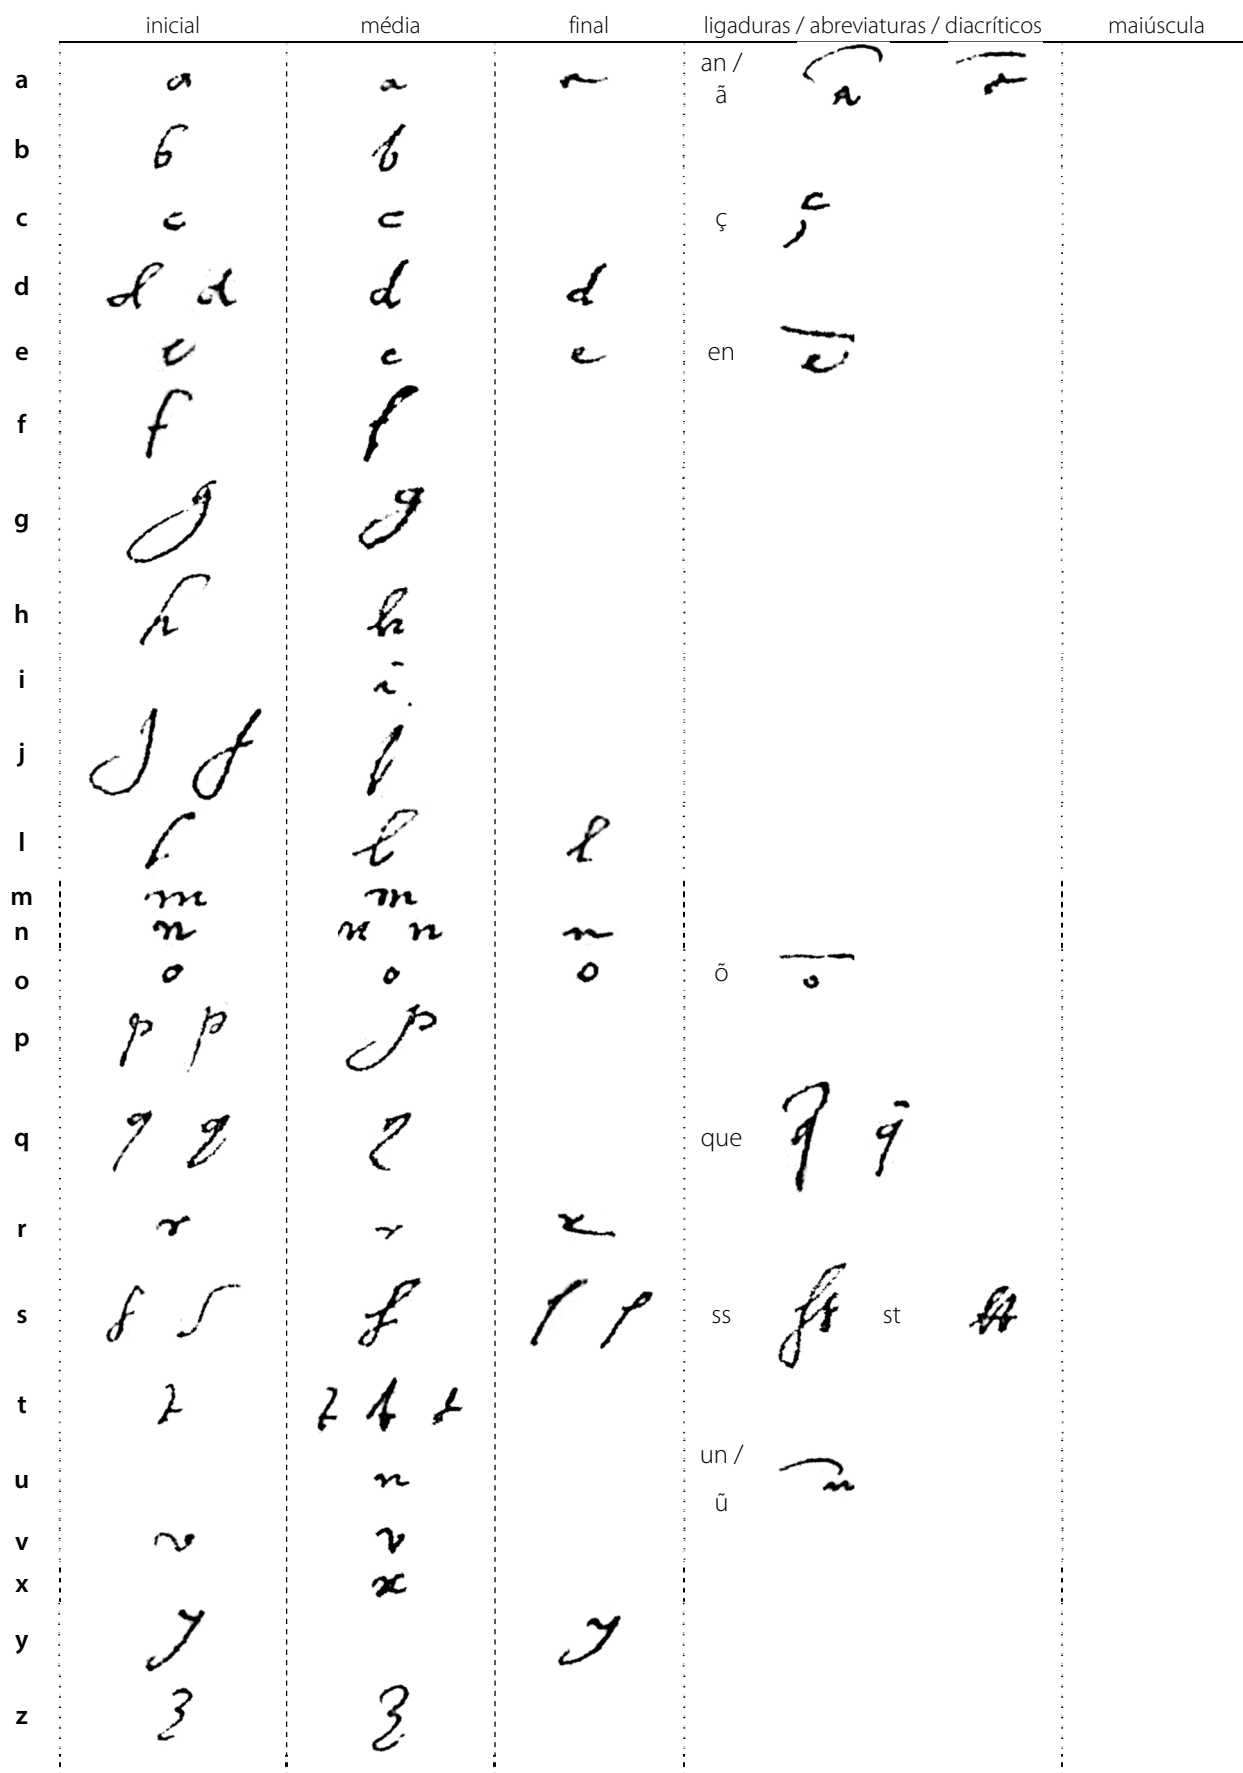 inicial média final ligaduras / abreviaturas / diacríticos maiúscula
a a a a an / ã ã ã
b b b
c c c ç ç
d d d d d
e e e e en ẽ
f f f
g g g
h h h
i i
j j j j
l l l l
m m m
n n n n n
o o o o õ õ
p p p p
q q q q que q̃ q̃
r r r r
s s s s s s ss ss st st
t t t t t
u u un / ũ ũ
v v v
x x
y y y
z z z